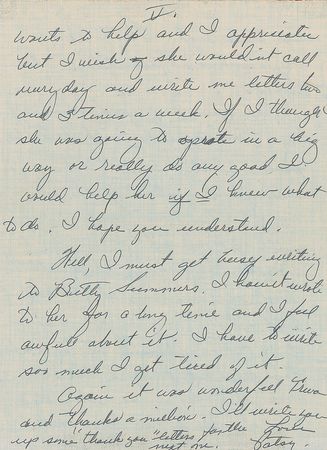 V.
wants to help and I appriciate
but I wish she would'nt call
everyday and write me letters two
and 3 times a week. If I thought
she was going to operate in a big
way or really do any good I
would help her if I knew what
to do. I hope you understand.
Well, I must get busy writing
to Betty Summers. I have'nt wrote
to her for a long time and I feel
awfull about it. I have to write
soo much I get tired of it.
Again it was wonderfull
and "thanks a million". I'll write you
up some "thank you" letters for the
next one. Love
Patsy.